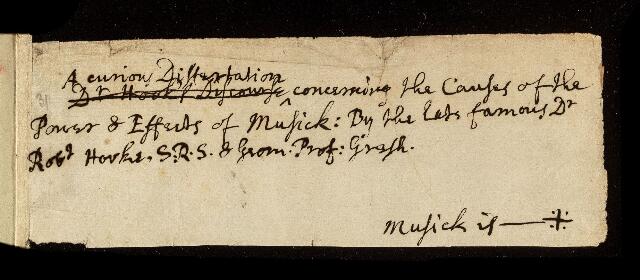 A curious Dissertation
Dr Hook's Discourse concerning the Causes of the
Power & Effects of Musick: By the late famous Dr
Robt Hooke, S.R.S. & Geom. Prof: Gresh.
Musick is —